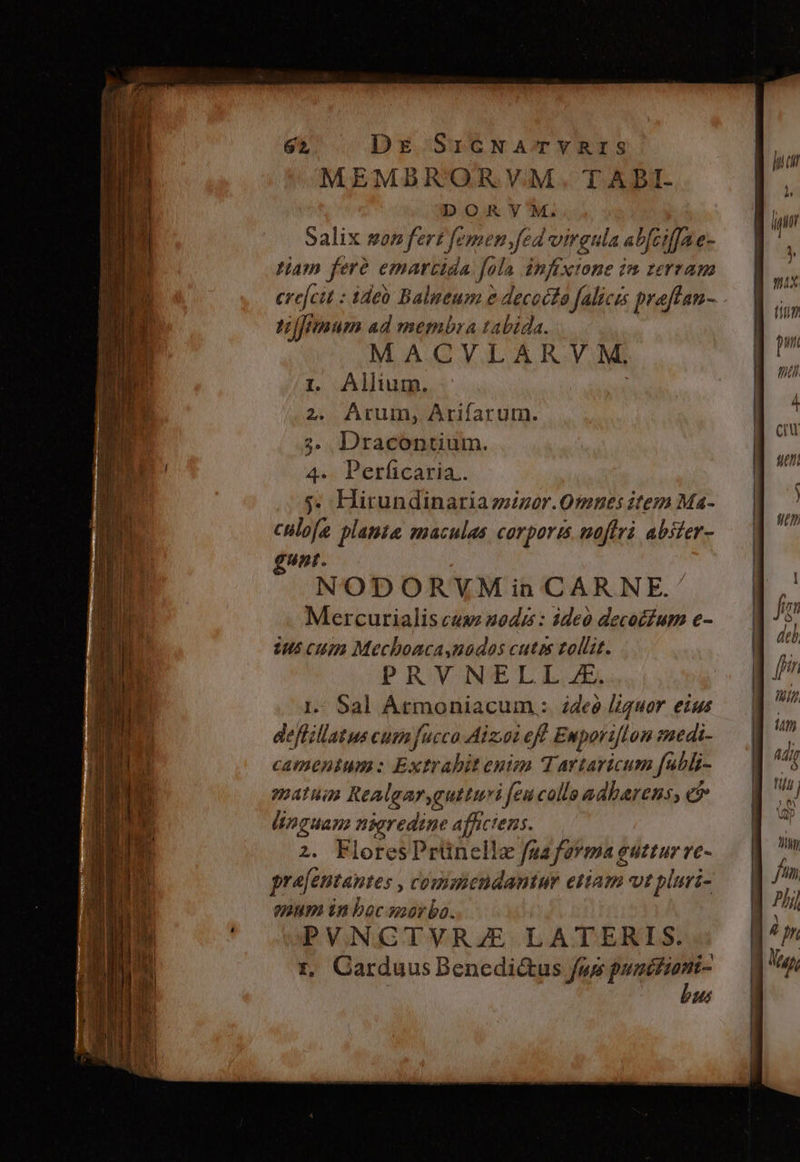 62 DE SIGNATVRIS
MEMBRORVM TABI-
DORVM.
Salix non fert ſemen, ſed virgula abſciſſa e-
tiam ferè emarcida ſola infixione in terram
creſcit : ideò Balneum è decocto ſalicis præſtan-
tiſſimum ad membra tabida.
MACVLARVM.
1. Allium.
2. Arum, Ariſarum.
3. Dracontium.
4. Perſicaria.
5. Hirundinaria minor. Omnes item Ma-
culoſæ plantæ maculas corporis noſtri abſter-
gunt.
NODORVM in CARNE.
Mercurialis cum nodis : ideò decoctum e-
ius cum Mechoaca, nodos cutis tollit.
PRVNELLÆ.
1. Sal Armoniacum : ideò liquor eius
deſtillatus cum ſucco Aizoi eſt Euporiſton medi-
camentum : Extrahit enim Tartaricum ſubli-
matum Realgar, gutturi ſeu collo adhærens, &
linguam nigredine afficiens.
2. Flores Prünellæ ſua forma guttur re-
præſentantes, commendantur etiam vt pluri-
mum in hoc morbo.
PVNCTVRÆ LATERIS.
1. Carduus Benedictus ſuis punctioni-
bus